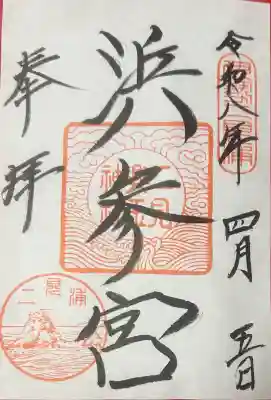 令和八年 四月 五日
浜参宮
奉拝
二見浦